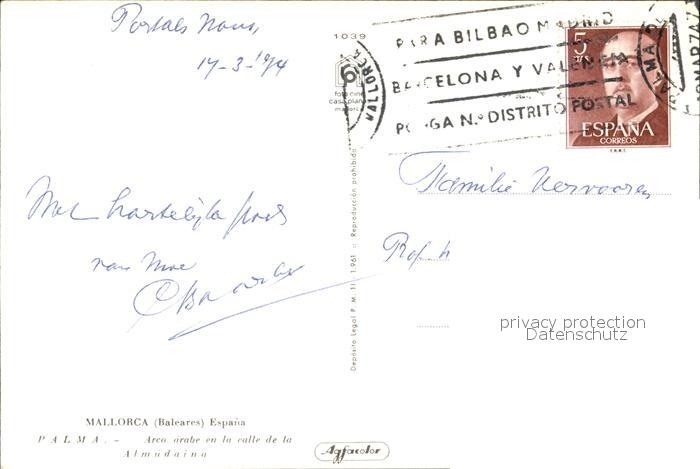 Portals Nous,
17-3-'74
1039
foto cine
casa planas
mallorca
MALLORCA
PARA BILBAO MADRID
BARCELONA Y VALENCIA
PONGA N.º DISTRITO POSTAL
PALMA
5
PTS
ESPAÑA
CORREOS
F.N.M.T.
Familie
Met hartelijke groet
van Mve
Depósito Legal P. M. 11 - 1.961 :: Reproducción prohibida
privacy protection
Datenschutz
MALLORCA (Baleares) España
PALMA. - Arco árabe en la calle de la
Almudaina
Agfacolor